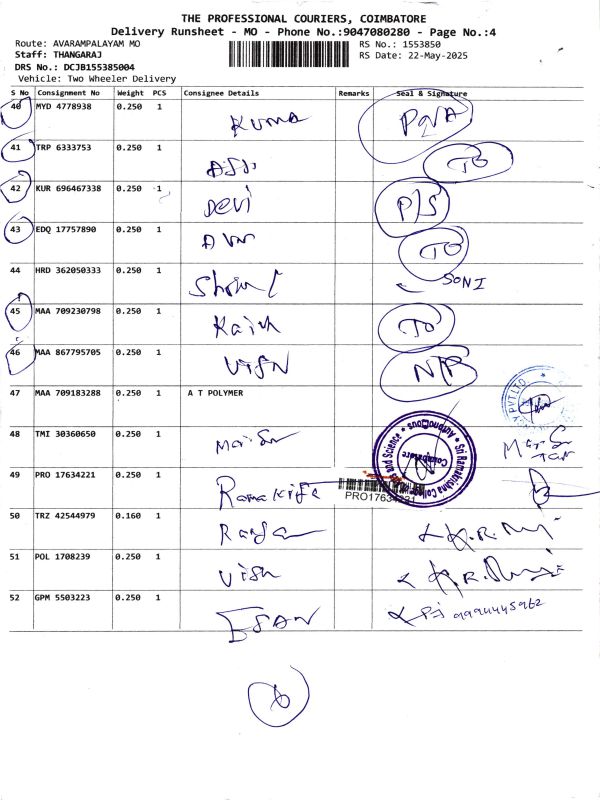 THE PROFESSIONAL COURIERS, COIMBATORE
Delivery Runsheet - MO - Phone No.:9047080280 - Page No.:4
Route: AVARAMPALAYAM MO RS No.: 1553850
Staff: THANGARAJ RS Date: 22-May-2025
DRS No.: DCJB155385004
Vehicle: Two Wheeler Delivery
S No Consignment No Weight PCS Consignee Details Remarks Seal & Signature
40 MYD 4778938 0.250 1 Kuma
41 TRP 6333753 0.250 1 TO
42 KUR 696467338 0.250 1 Devi P/S
43 EDQ 17757890 0.250 1 TO
44 HRD 362050333 0.250 1 SONI
45 MAA 709230798 0.250 1 TO
46 MAA 867795705 0.250 1 N/B
47 MAA 709183288 0.250 1 A T POLYMER
PVT.LTD
48 TMI 30360650 0.250 1
Sri Ramakrishna College of Arts and Science
Autonomous
Coimbatore
49 PRO 17634221 0.250 1
PRO17634221
50 TRZ 42544979 0.160 1
51 POL 1708239 0.250 1
52 GPM 5503223 0.250 1 9994445962